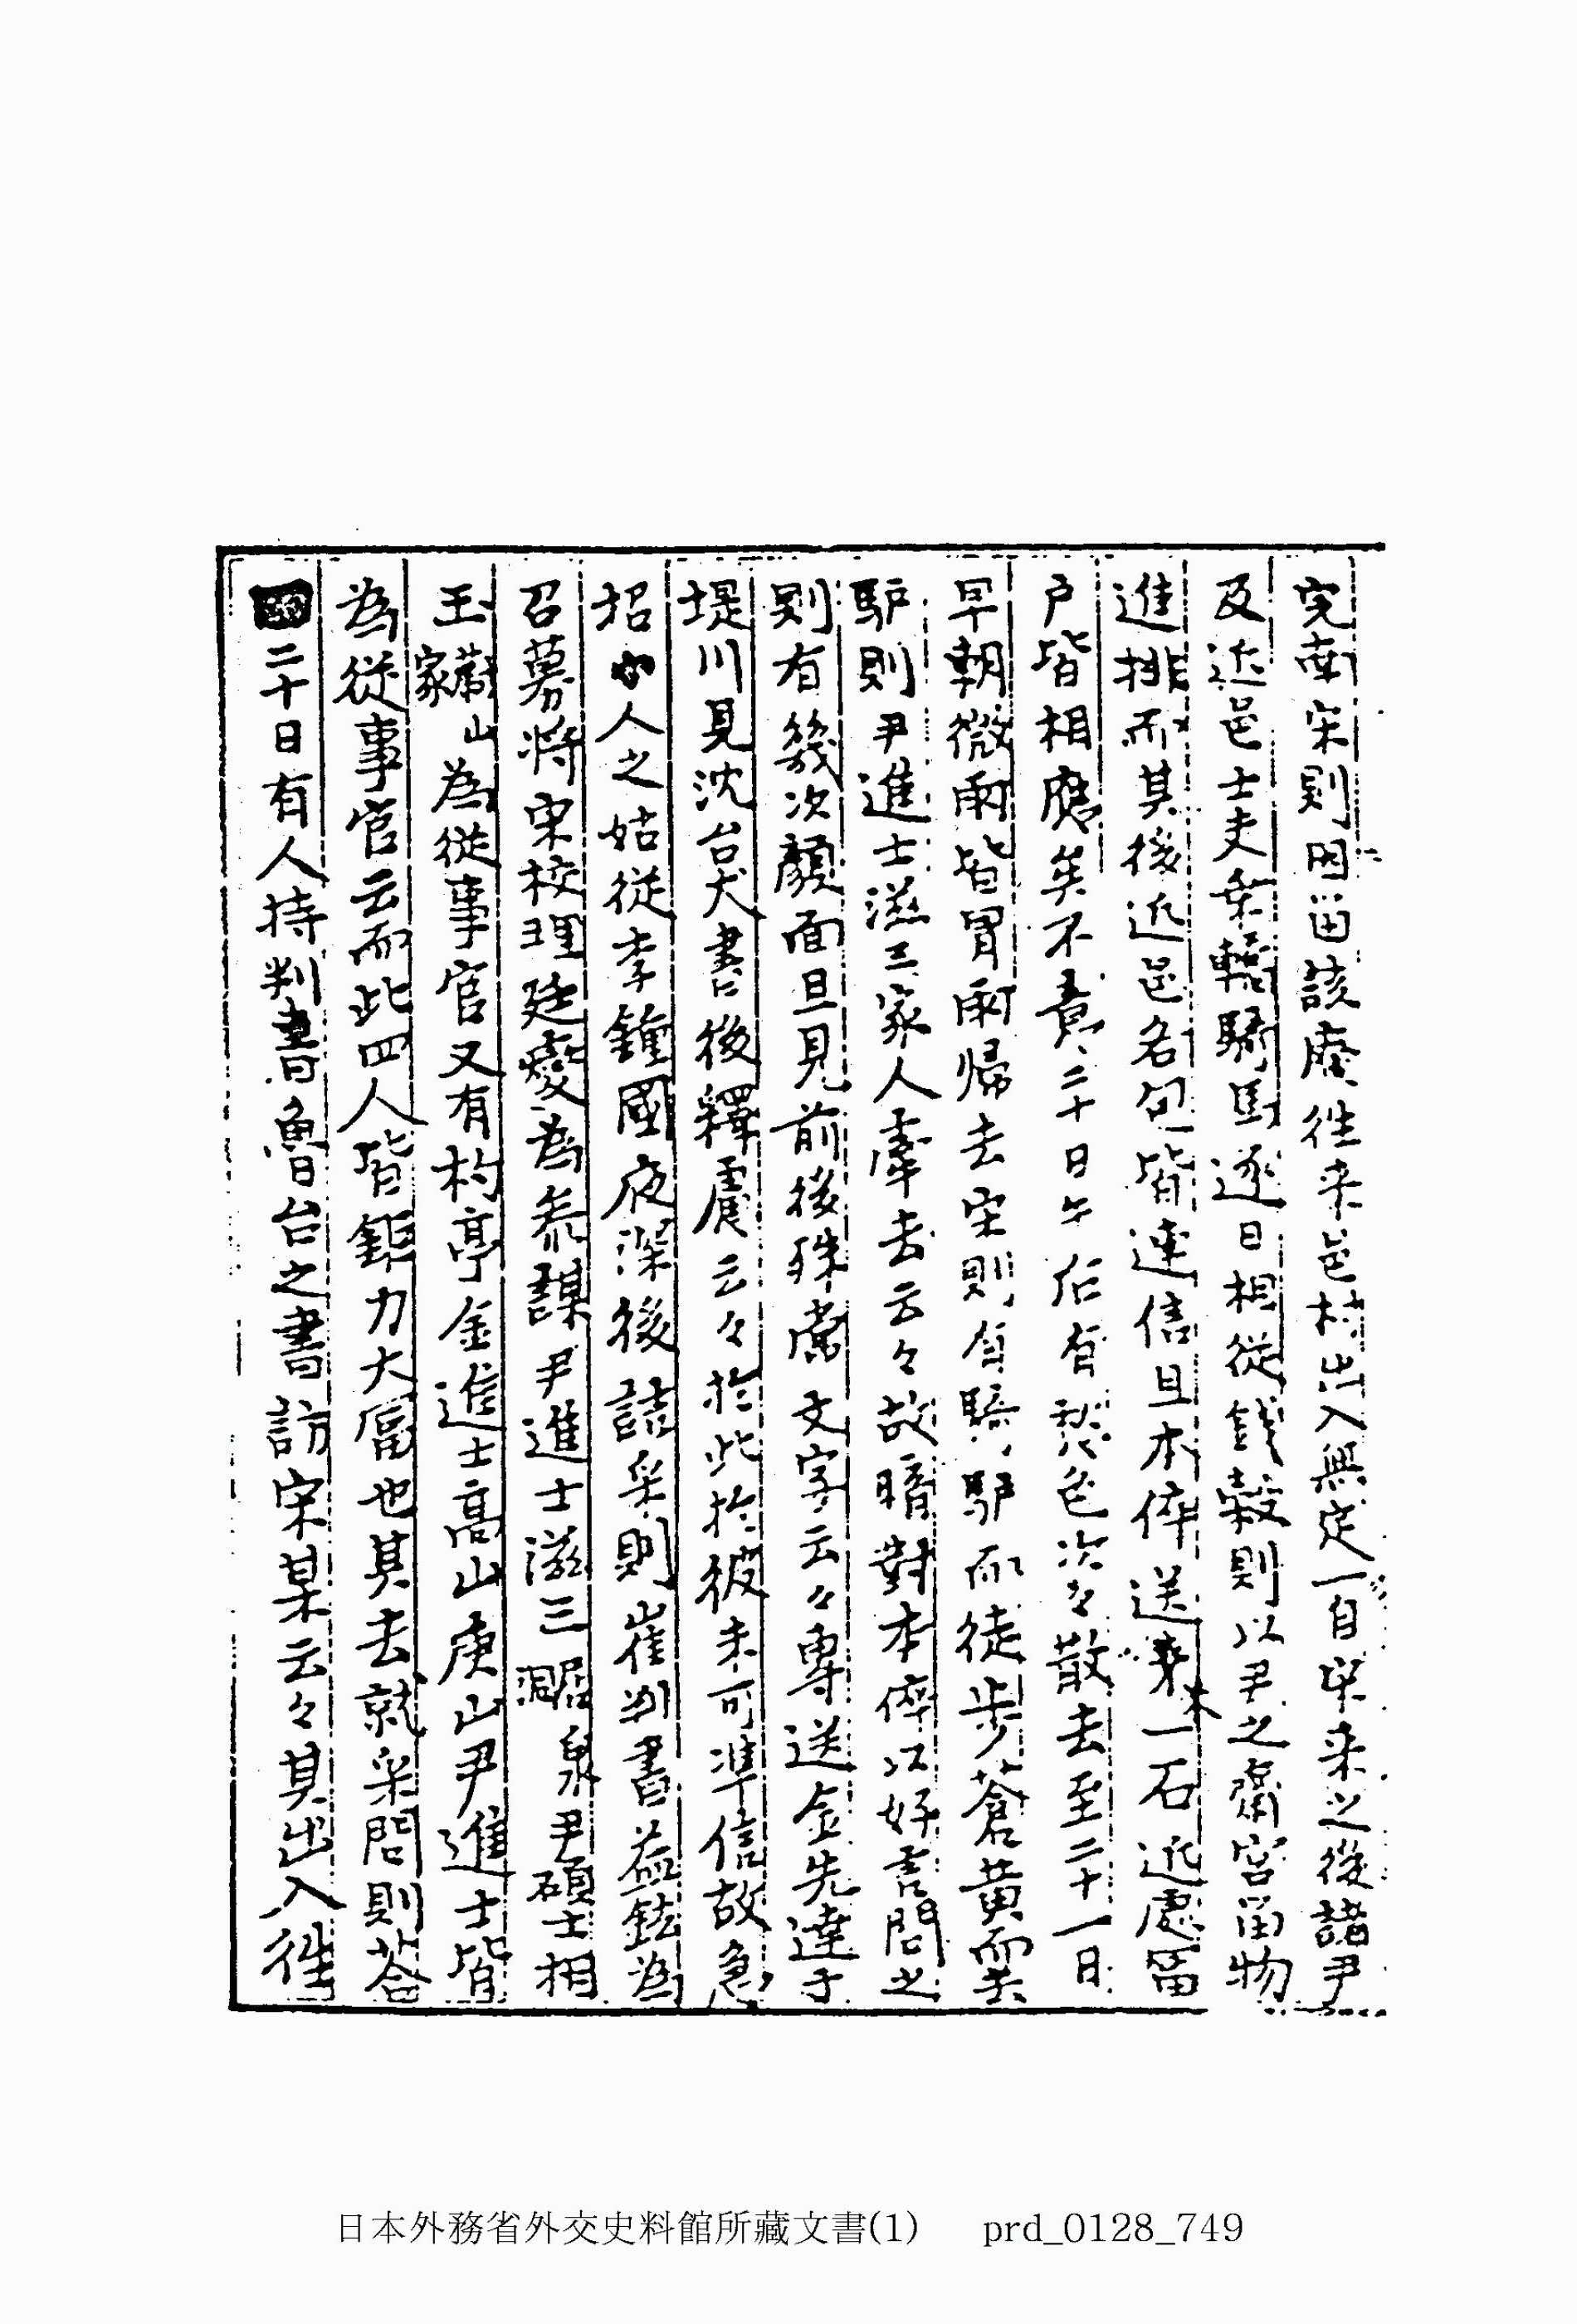 完南宋則因留該廢徃来邑村出入無定一自宋来之後諸尹
及近邑士夫乘轎騎馬逐日相從錢穀則以尹之齋宮留物
進排而其後近邑名包皆連信且本倅送来米一石近處留
户皆相應矣不意二十日午后有愁色次々散去至二十一日
早朝微雨皆冒雨帰去宋則自騎驴而徒步蒼黄而去
驴則尹進士滋三家人牽去云々故暗對本倅以好言問之
則有幾次顏面且見前後殊常文字云々專送金先達于
堤川見沈台犬書後釋慮云々於此於彼未可準信故急
招小人之姑從李鍾國夜深後詰采則崔判書益鉉為
召募将宋校理廷燮為叅謀尹進士滋三居泉洞尹碩士相
玉家藏山為從事官又有杓亭金進士高山庚山尹進士皆
為從事官云而此四人皆鉅力大富也其去就采問則荅
二十日有人持判書魯台之書訪宋某云々其出入徃
日本外務省外交史料館所藏文書(1) prd_0128_749